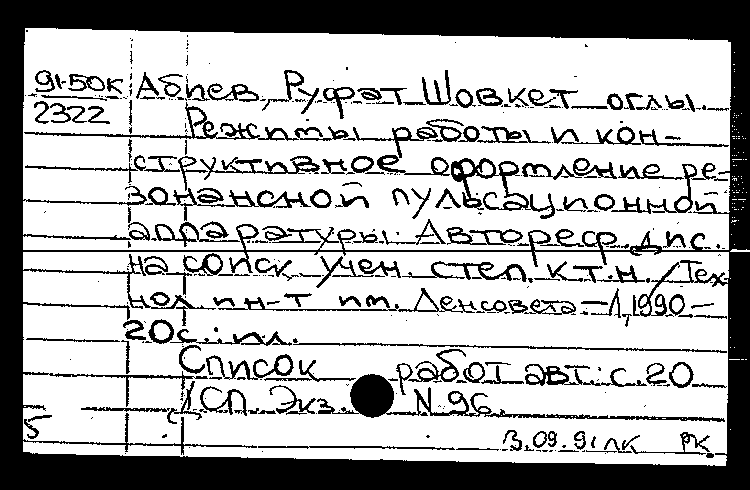 91-50К Абиев, Руфат Шовкет оглы.
2322 Режимы работы и кон-
структивное оформление ре-
зонансной пульсационной
аппаратуры: Автореф. дис.
на соиск. учен. степ. к.т.н. / Тех-
нол. ин-т им. Ленсовета. — Л., 1990. —
20с.: ил.
Список работ авт.: с. 20
/СП. Экз. N 96.
5
13.09.91 ЛК РК.